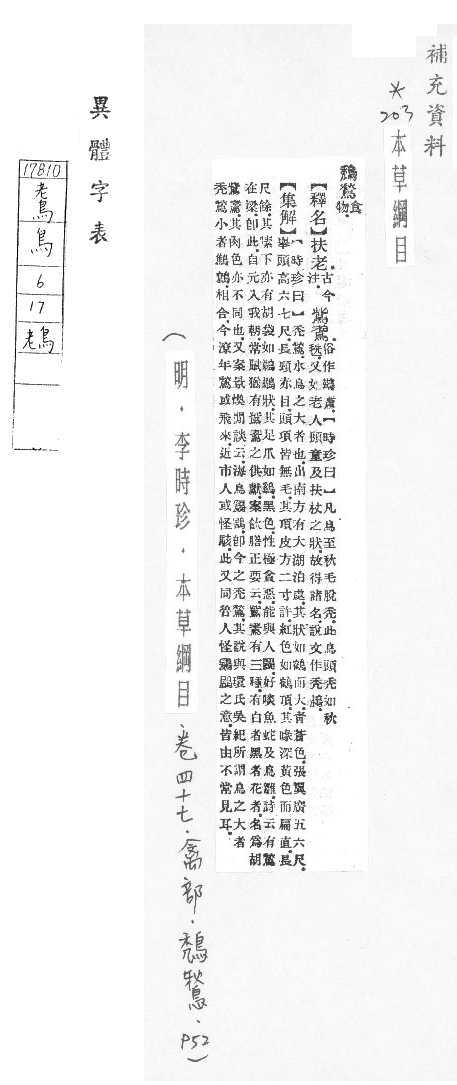 補充資料
*
203 本草綱目
鵚鶖 食物
【釋名】扶老。古今注。鴜鷲。俗作鶖鷲。【時珍曰】凡鳥至秋毛脫禿。此鳥頭禿如秋
毨。又如老人頭童及扶杖之狀。故得諸名。說文作禿鶖。
【集解】【時珍曰】禿鶖。水鳥之大者也。出南方有大湖泊處。其狀如鶴而大。青蒼色。張翼廣五六尺。
舉頭高六七尺。長頸赤目。頭項皆無毛。其頂皮方二寸許。紅色如鶴頂。其喙深黃色而扁直。長
尺餘。其嗉下亦有胡袋。如鵜鶘狀。其足爪如雞。黑色。性極貪惡。能與人鬭。好啖魚蛇及鳥雛。詩云有鶖
在梁。即此。自元入我朝。常賦猶有鶖鷲之供獻。案飲膳正要云。鴜鷲有三種。有白者黑者花者。名為胡
鴜鷲。其肉色亦不同也。又案景煥閒談云。海鳥鶢鶋。即今之禿鶖。其說與環氏吳紀所謂鳥之大者
禿鶖。小者鶢鶋相合。今潦年鶖或飛來近市。人或怪駭。此又同魯人怪鶢鶋之意。皆由不常見耳。
(明.李時珍.本草綱目.卷四十七.禽部.鵚鶖.P52)
異體字表
17810
鳥
6
17